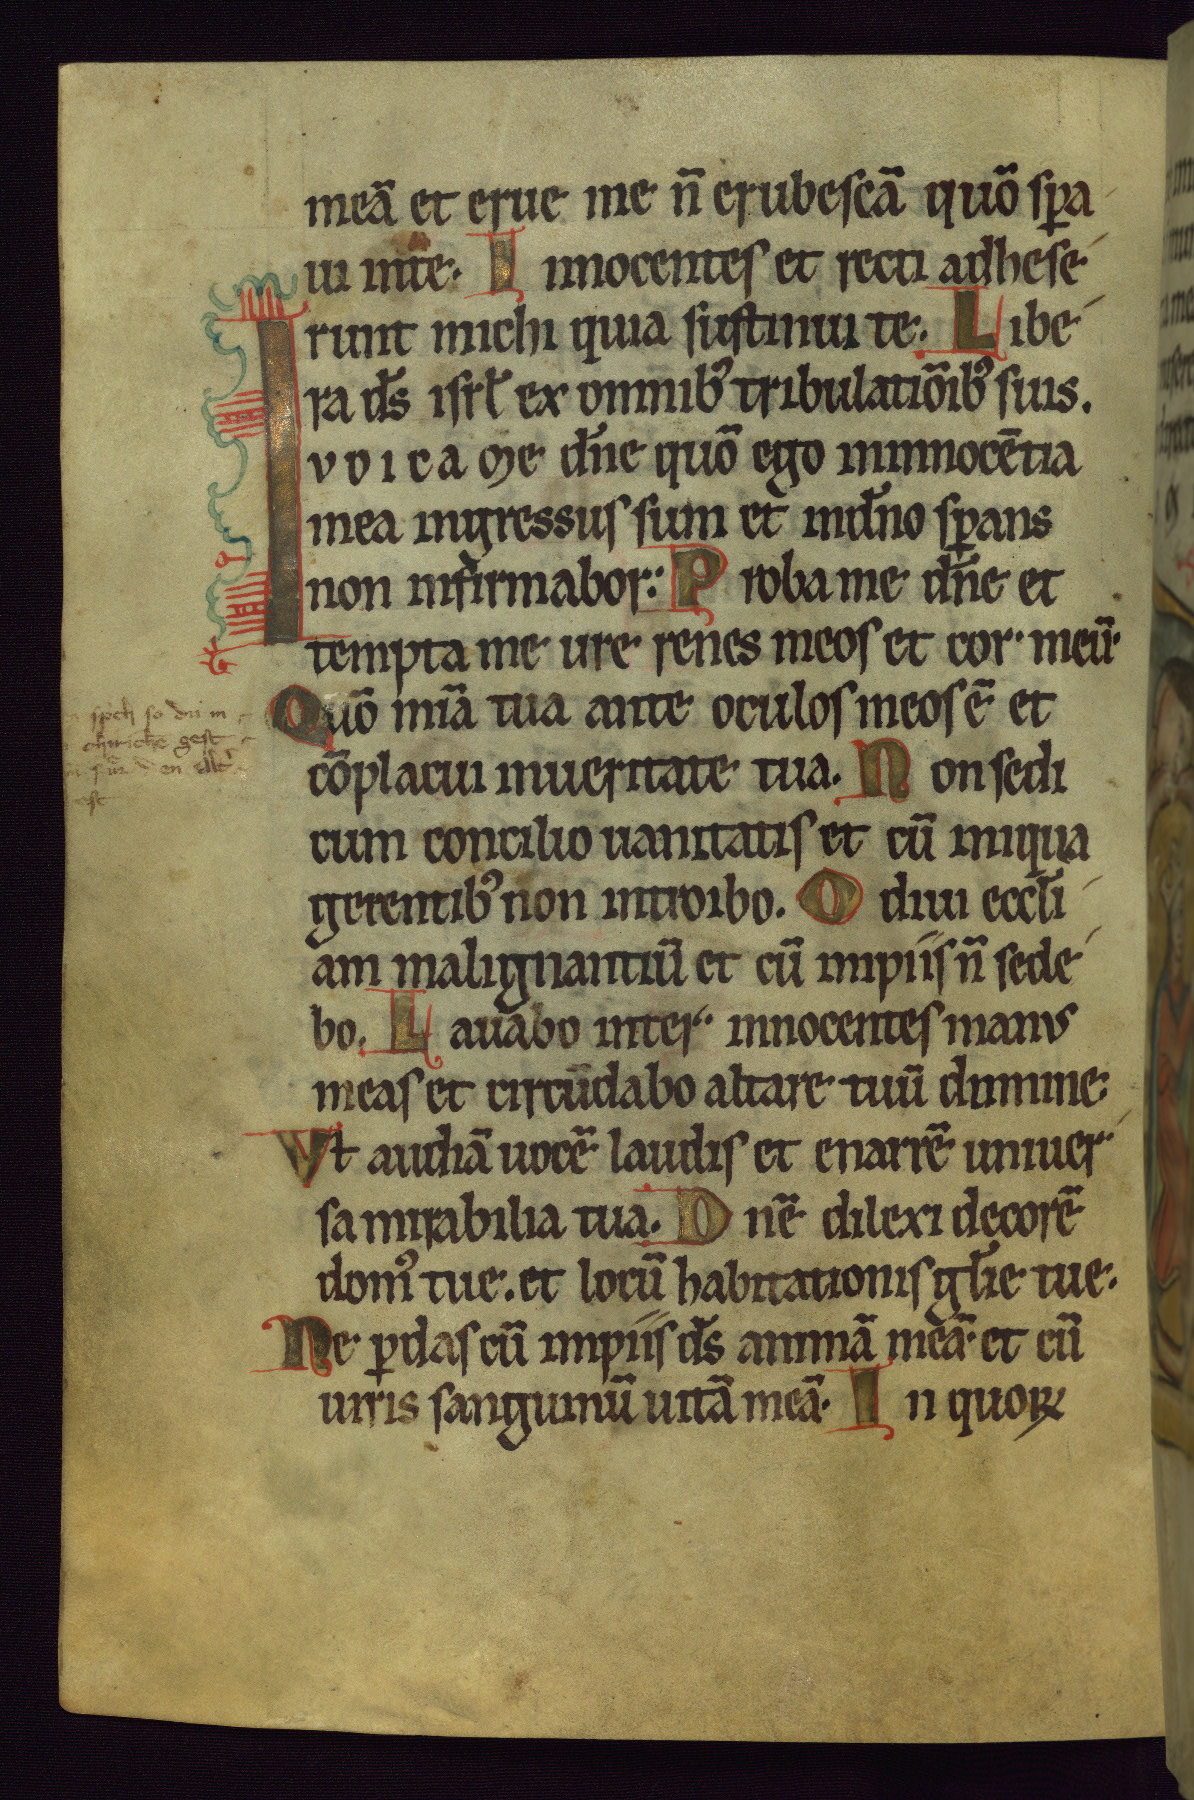 meā et erue me n̄ erubescā quō sꝑa
ui inte. Innocentes et recti adhese
runt michi quia sustinui te. Libe
ra ds̄ isrl̄ ex omnibꝰ tribulatiōibꝰ suis.
Ivdica me dn̄e quō ego ininnocētia
mea ingressus sum et indn̄o sꝑans
non infirmabor: Proba me dn̄e et
tempta me ure renes meos et cor meū
Quō mīa tua ante oculos meos ē et
cōplacui inueritate tua. Non sedi
cum concilio uanitatis et cū iniqua
gerentibꝰ non introibo. Odiui eccl̄i
am malignantiū et cū impiis n̄ sede
bo. Lauabo inter innocentes manvs
meas et circūdabo altare tuū domine
Vt audiā uocē laudis et enarrē uniuer
sa mirabilia tua. Dnē dilexi decorē
domꝰ tue. et locū habitationis gl̄ie tue.
Ne ꝑdas cū impiis ds̄ animā meā et cū
uiris sanguinū uitā meā. In quoꝝ